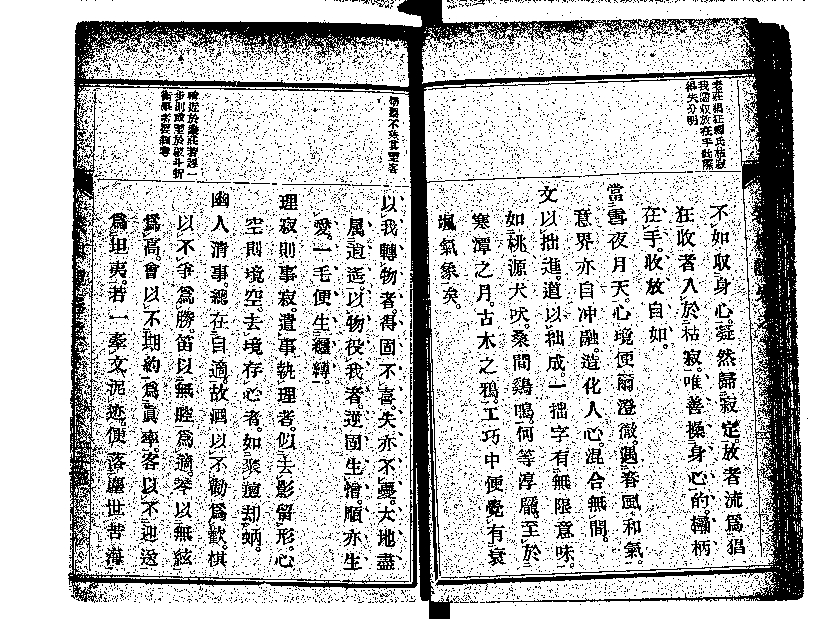 不如收身心。凝然歸寂定。放者流爲猖
狂。收者入於枯寂。唯善操身心的。欛柄
在手。收放自如。
當雪夜月天。心境便爾澄徹。遇春風和氣。
意界亦自冲融。造化人心。混合無間。
文以拙進。道以拙成。一拙字有無限意味。
如桃源犬吠。桑間鷄鳴。何等淳龐。至於
寒潭之月。古木之鴉。工巧中便覺有衰
颯氣象矣。
以我轉物者。得固不喜。失亦不憂。大地盡
屬逍遙。以物役我者。逆固生憎。順亦生
愛。一毛便生纏縛。
理寂則事寂。遣事執理者。似去影留形。心
空則境空。去境存心者。如聚羶却蚋。
幽人清事。總在自適。故酒以不勸爲歡。棋
以不爭爲勝。笛以無腔爲適。琴以無絃
爲高。會以不期約爲眞率。客以不迎送
爲坦夷。若一牽文泥迹。便落塵世苦海